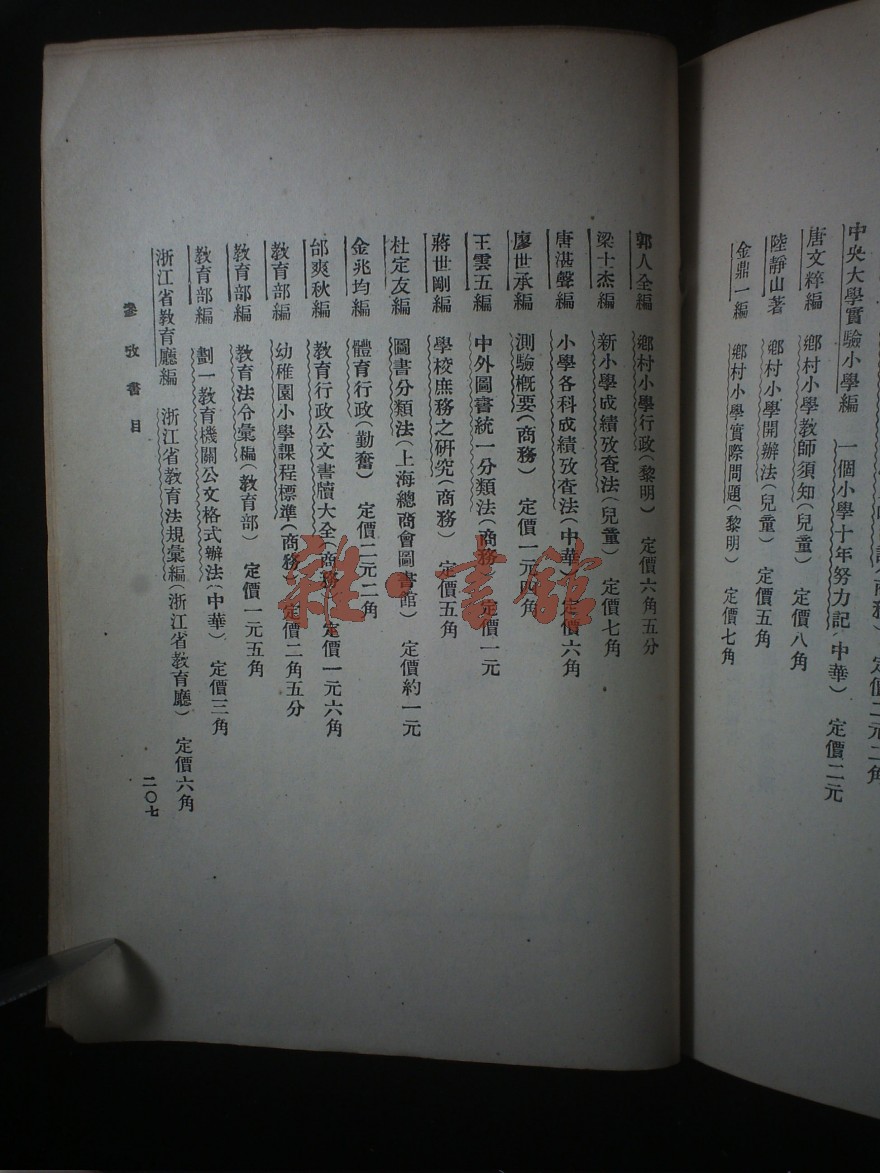 中央大學實驗小學編　一個小學十年努力記（中華）　定價二元
唐文粹編　鄉村小學教師須知（兒童）　定價八角
陸靜山著　鄉村小學開辦法（兒童）　定價五角
金鼎一編　鄉村小學實際問題（黎明）　定價七角
郭人全編　鄉村小學行政（黎明）　定價六角五分
梁士杰編　新小學成績攷查法（兒童）　定價七角
唐湛聲編　小學各科成績攷查法（中華）　定價六角
廖世承編　測驗概要（商務）　定價一元四角
王雲五編　中外圖書統一分類法（商務）　定價一元
蔣世剛編　學校庶務之研究（商務）　定價五角
杜定友編　圖書分類法（上海總商會圖書館）　定價約一元
金兆均編　體育行政（勤奮）　定價二元二角
邰爽秋編　教育行政公文書牘大全（商務）　定價一元六角
教育部編　幼稚園小學課程標準（商務）　定價二角五分
教育部編　教育法令彙編（教育部）　定價一元五角
教育部編　劃一教育機關公文格式辦法（中華）　定價三角
浙江省教育廳編　浙江省教育法規彙編（浙江省教育廳）　定價六角
參攷書目　二〇七
雜·書館